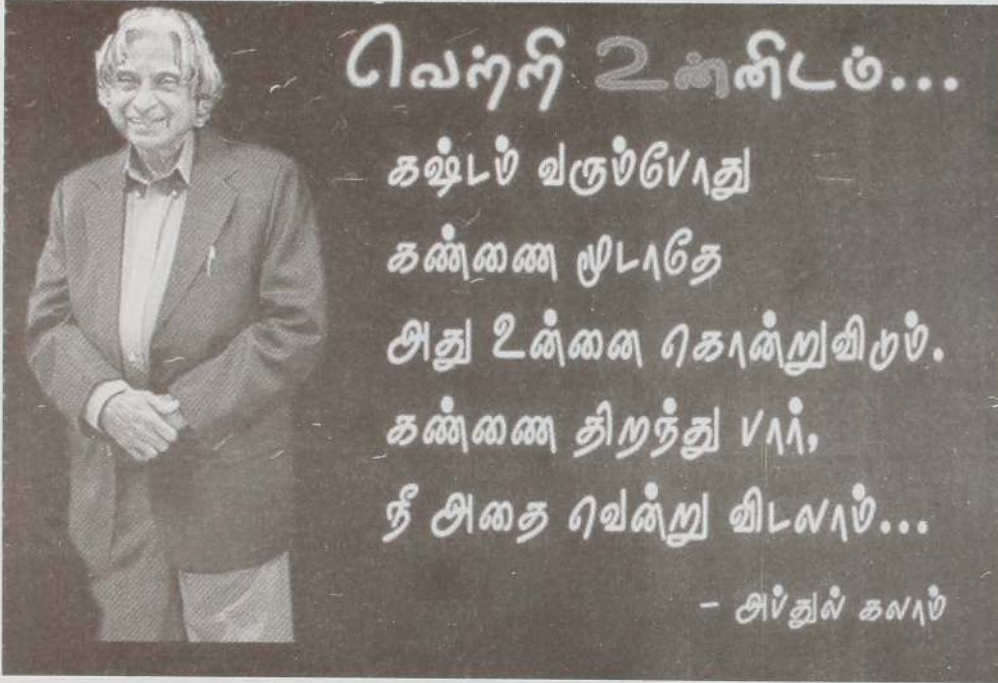 வெற்றி உன்னிடம்...
கஷ்டம் வரும்போது
கண்ணை மூடாதே
அது உன்னை கொன்றுவிடும்.
கண்ணை திறந்து பார்,
நீ அதை வென்று விடலாம்...
- அப்துல் கலாம்